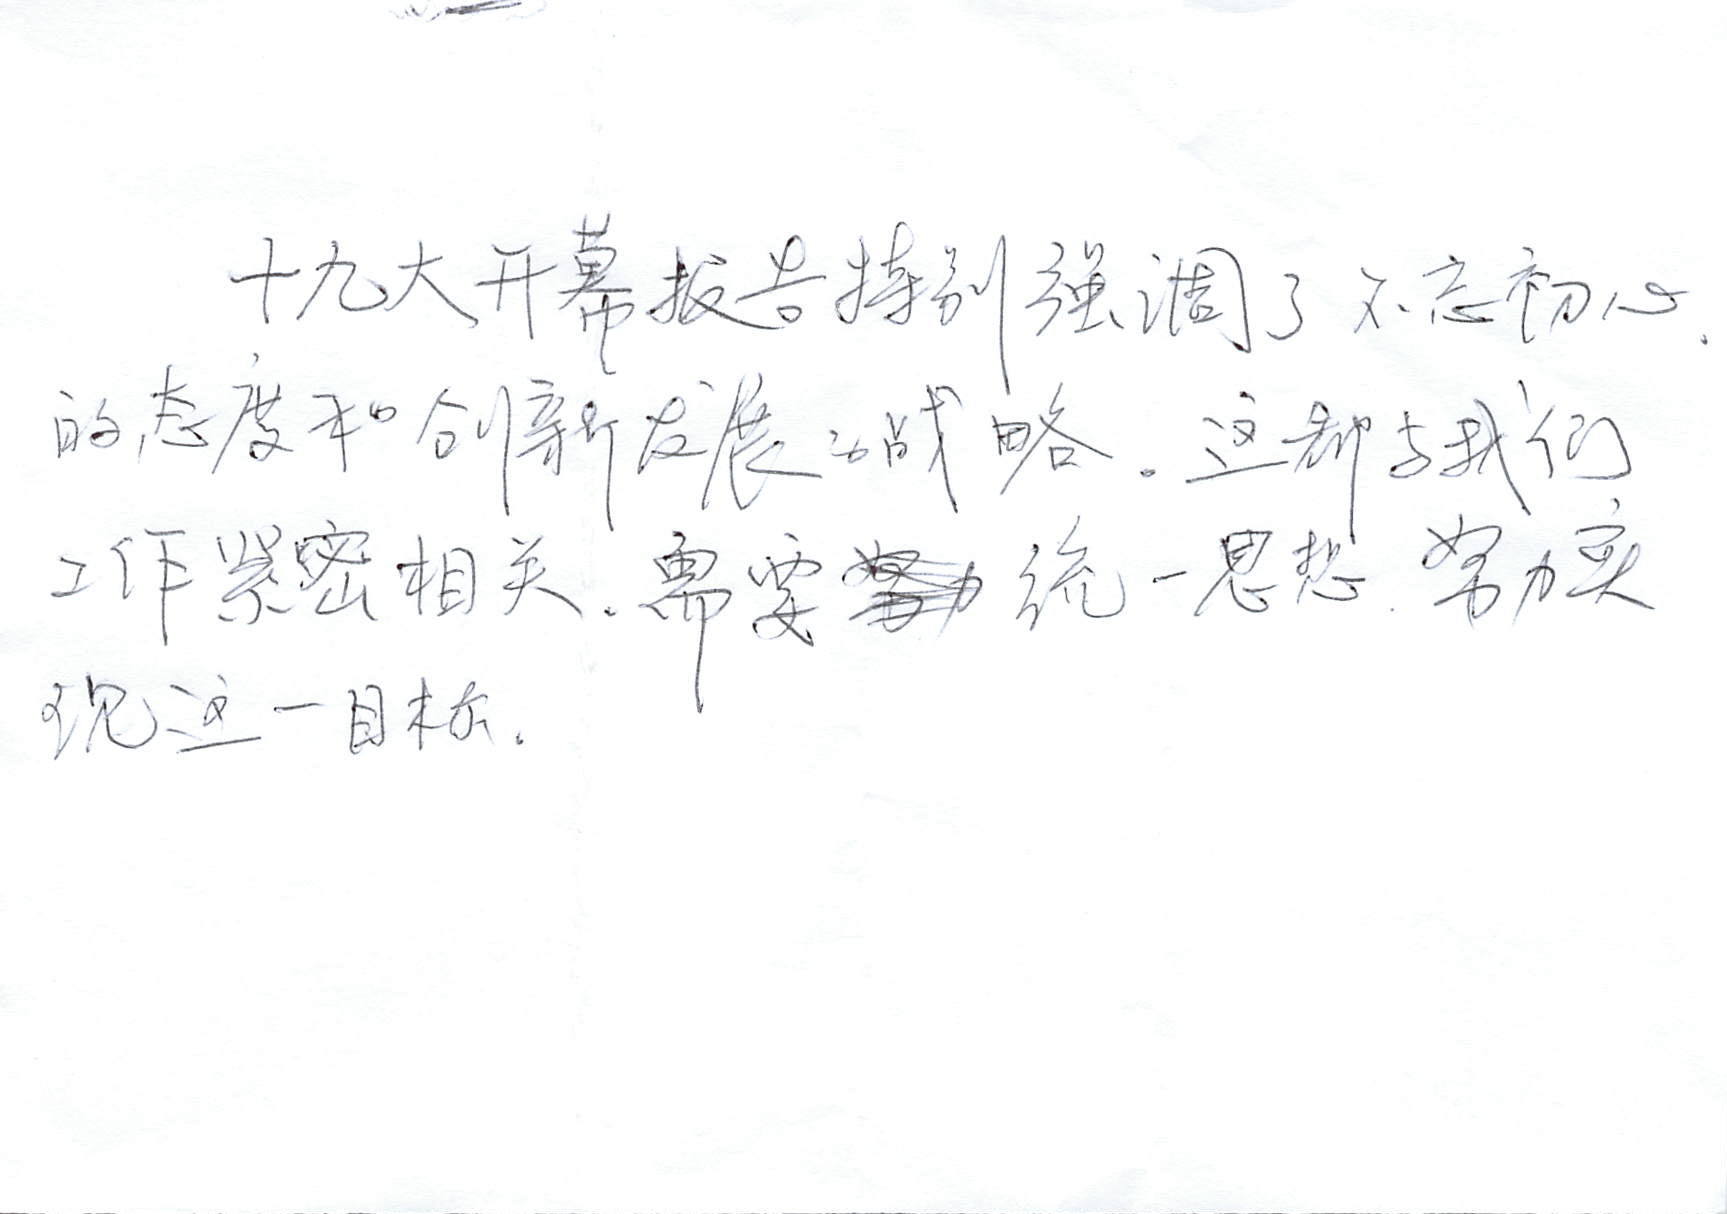 十九大开幕报告特别强调了不忘初心.
的态度和创新发展的战略.这都与我们
工作紧密相关.需要统一思想.努力实
现这一目标.